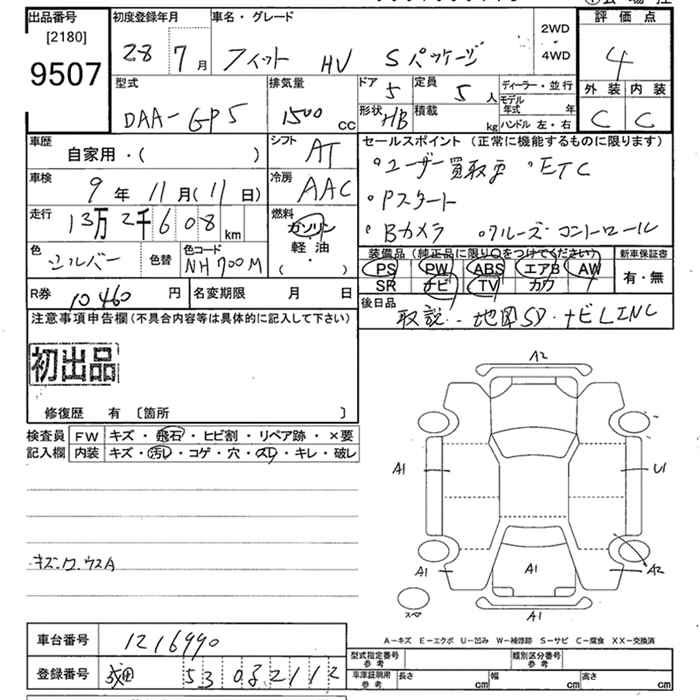 出品番号
[2180]
9507
初度登録年月
28 7月
車名・グレード
フィット HV Sパッケージ
2WD
4WD
評価点
4
外装 内装
C C
型式
DAA-GP5
排気量
1500 CC
ドア 5
形状 HB
定員 5人
積載 kg
ディーラー・並行
モデル年式 年
ハンドル 左・右
車歴
自家用・( )
シフト
AT
車検
9年 11月(11日)
冷房
AAC
走行
13万2千608 km
燃料
ガソリン
軽油
( ・ )
色
シルバー
色替
色コード
NH700M
R券 10460円
名変期限 月 日
セールスポイント (正常に機能するものに限ります)
・ユーザー買取車 ・ETC
・Pスタート
・Bカメラ ・クルーズ・コントロール
装備品(純正品に限り〇をつけてください)
新車保証書
PS PW ABS エアB AW
SR ナビ TV カワ
有・無
後日品
取説・地図SD・ナビLINC
注意事項申告欄(不具合内容等は具体的に記入して下さい)
初出品
修復歴 有 〔箇所 〕
検査員
記入欄
FW キズ・飛石・ヒビ割・リペア跡・×要
内装 キズ・汚レ・コゲ・穴・スレ・キレ・破レ
A2
A1
U1
A1
A1
A2
A1
スペア
A-キズ E-エクボ U-凹み W-補修跡 S-サビ C-腐食 XX-交換済
車台番号 1216990
登録番号 成田 530 す 2112
型式指定番号
参考
類別区分番号
参考
車庫証明用
参考
長さ cm 幅 cm 高さ cm